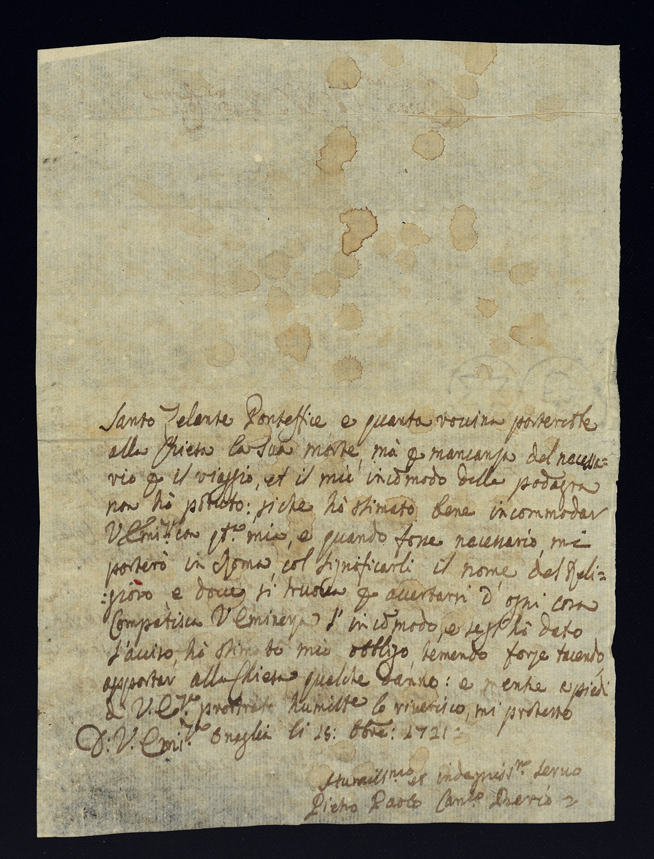 Santo Zelante Ponteffice e quanta rovina porterebbe
alla Chiesa la sua morte, mà p mancanza del necessa=
rio p il viaggio, et il mio incomodo della podagra
non hò potuto: siche hò stimato bene incommodar
V. Emin.ᵃ con q.ᵗᵃ mia, e quando fosse necessario, mi
porterò in Roma, col significarli il nome del Reli=
:gioso e dove si truova p accertarsi d'ogni cosa
Compatisca V Eminenza l'incomodo, e se gl'hò dato
l'aviso, hò stimato mio obbligo, temendo forse tacendo,
apportar alla Chiesa qualche danno: e mentre a piedi
di V. E.ᶻᵃ prostrato humilte le riverisco, mi protesto
D: V. Emin.ᶻᵃ Oneglia li 18: 8bre: 1721:
Humiliss.ᵐᵒ et indegniss.ᵐᵒ servo
Pietro Paolo Can.ᶜᵒ